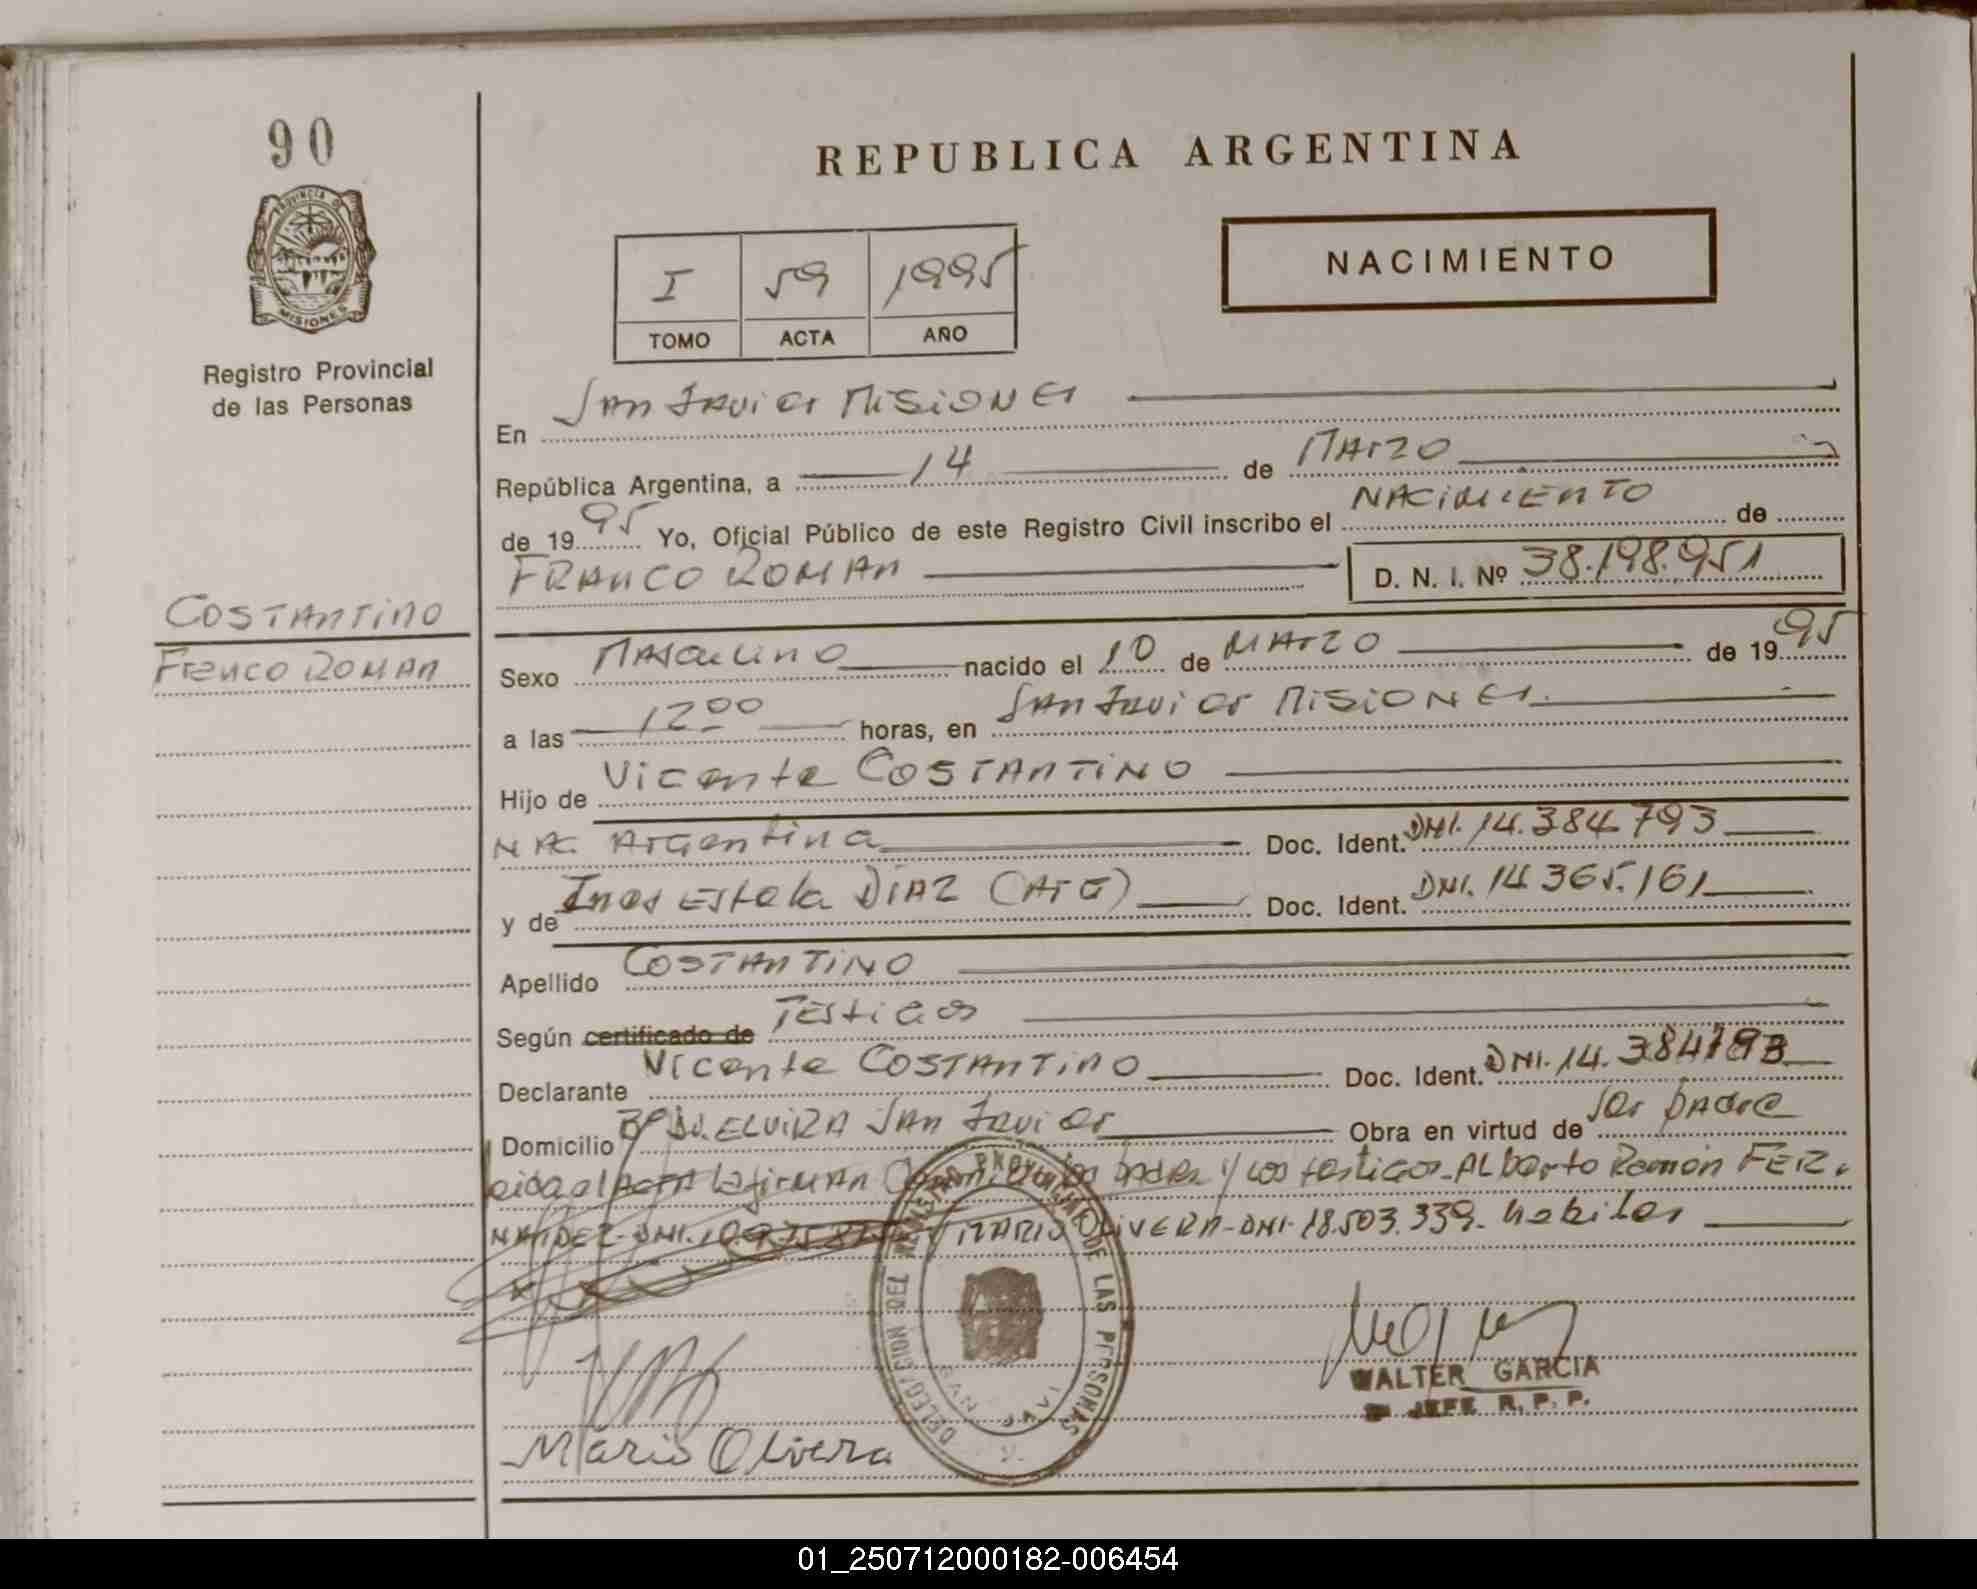 90
PROVINCIA DE
MISIONES
Registro Provincial
de las Personas
COSTANTINO
FRANCO ROMAN
REPUBLICA ARGENTINA
I 59 1995
TOMO ACTA AÑO
NACIMIENTO
En San Javier Misiones
República Argentina, a 14 de Marzo
de 1995 Yo, Oficial Público de este Registro Civil inscribo el NACIMIENTO de
FRANCO ROMAN D. N. I. Nº 38.198.951
Sexo Masculino nacido el 10 de Marzo de 1995
a las 12 00 horas, en San Javier Misiones.
Hijo de Vicente COSTANTINO
NAC. Argentina Doc. Ident. DNI. 14.384.793
y de Ines Estela DIAZ (ARG) Doc. Ident. DNI. 14.365.161
Apellido COSTANTINO
Según certificado de Testigos
Declarante Vicente COSTANTINO Doc. Ident. DNI. 14.384793
Domicilio ELVIRA San Javier Obra en virtud de ser padre
Leida el Acta la firman los padres y los testigos. Alberto Ramón FER.
NANDEZ-DNI. MARIO OLIVERA-DNI-18.503.339. habiles
DELEGACION DEL REGISTRO PROVINCIAL DE LAS PERSONAS
SAN JAVIER
WALTER GARCIA
JEFE R. P. P.
Mario Olivera
01_250712000182-006454